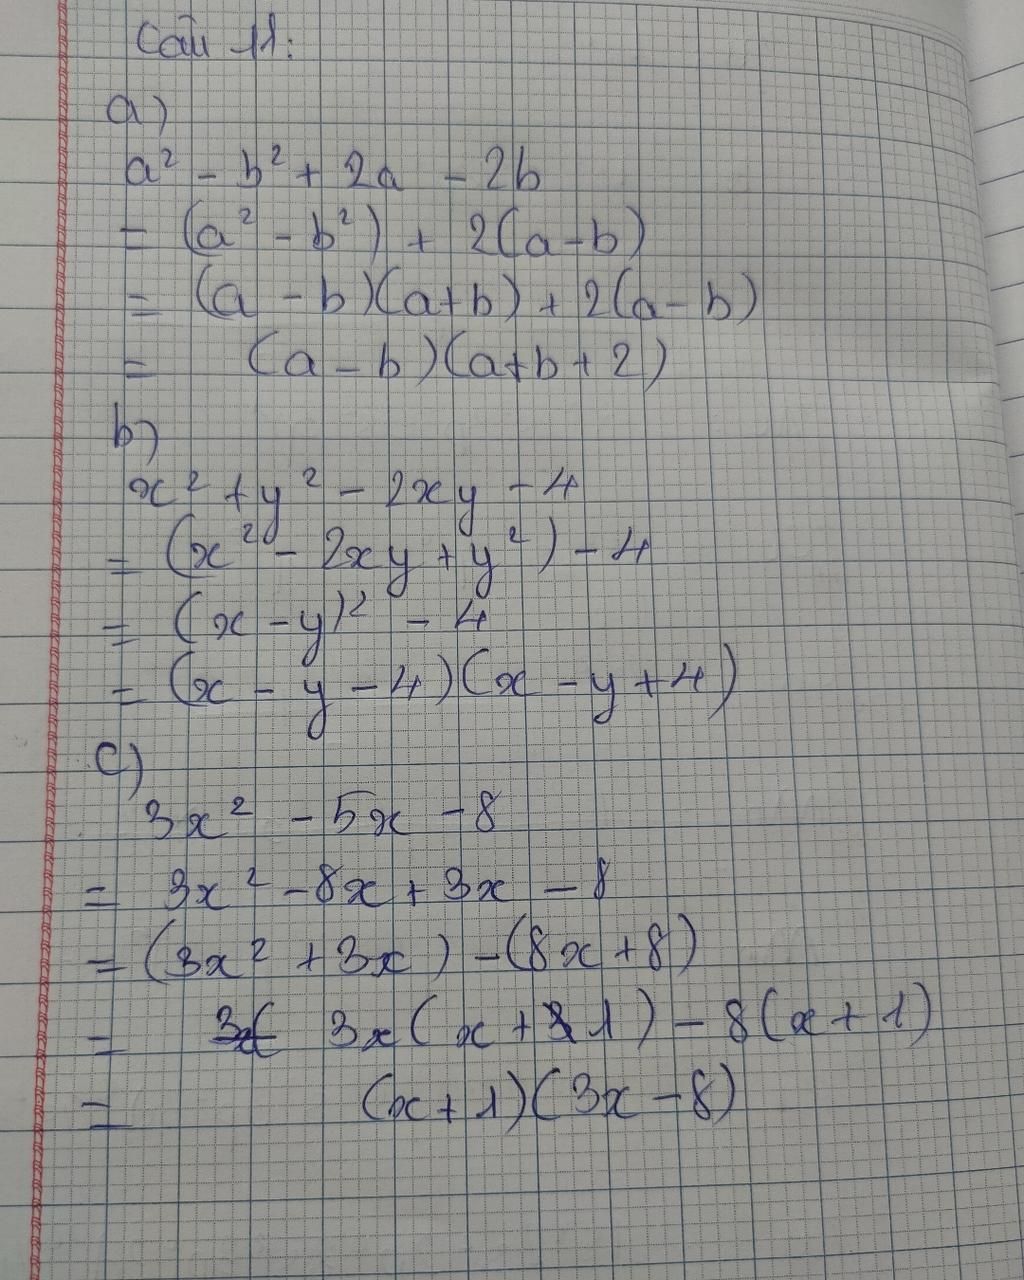 Câu 11:
a)
a² - b² + 2a - 2b
= (a² - b²) + 2(a - b)
= (a - b)(a + b) + 2(a - b)
= (a - b)(a + b + 2)
b)
x² + y² - 2xy - 4
= (x² - 2xy + y²) - 4
= (x - y)² - 4
= (x - y - 4)(x - y + 4)
c)
3x² - 5x - 8
= 3x² - 8x + 3x - 8
= (3x² + 3x) - (8x + 8)
= 3x(x + 1) - 8(x + 1)
= (x + 1)(3x - 8)